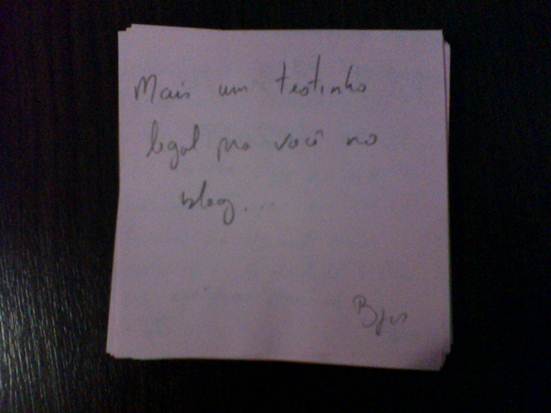 Mais um testinho
legal pra você no
blog...
Bjus